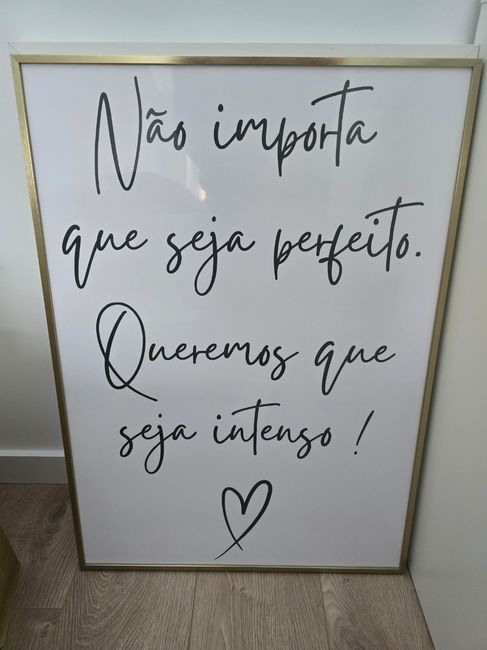 Não importa
que seja perfeito.
Queremos que
seja intenso !